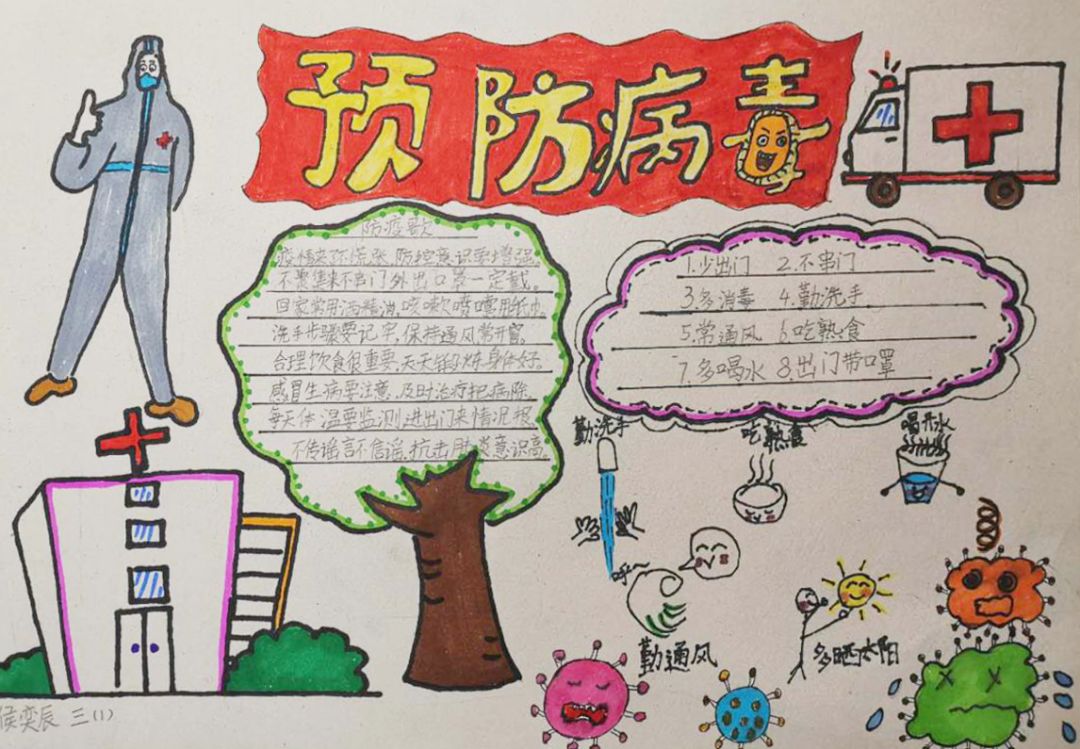 预防病毒
防疫歌
疫情来, 你莫慌, 防控意识要增强。
不聚集来不串门, 外出口罩一定戴。
回家常用酒精消, 咳嗽喷嚏用纸巾。
洗手步骤要记牢, 保持通风常开窗。
合理饮食很重要, 天天锻炼身体好。
感冒生病要注意, 及时治疗把病除。
每天体温要监测, 进出门来情况报。
不传谣言不信谣, 抗击肺炎意识高。
1.少出门 2.不串门
3.多消毒 4.勤洗手
5.常通风 6.吃熟食
7.多喝水 8.出门带口罩
勤洗手
吃熟食
喝开水
呼~
勤通风
多晒太阳
侯奕辰 三(1)